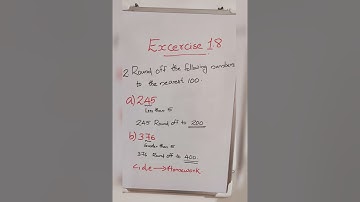 Excercise 18
2 Round off the following numbers
to the nearest 100.
a) 245
Less than 5
245 Round off to 200
b) 376
Greater than 5
376 Round off to 400.
c,d,e → Homework